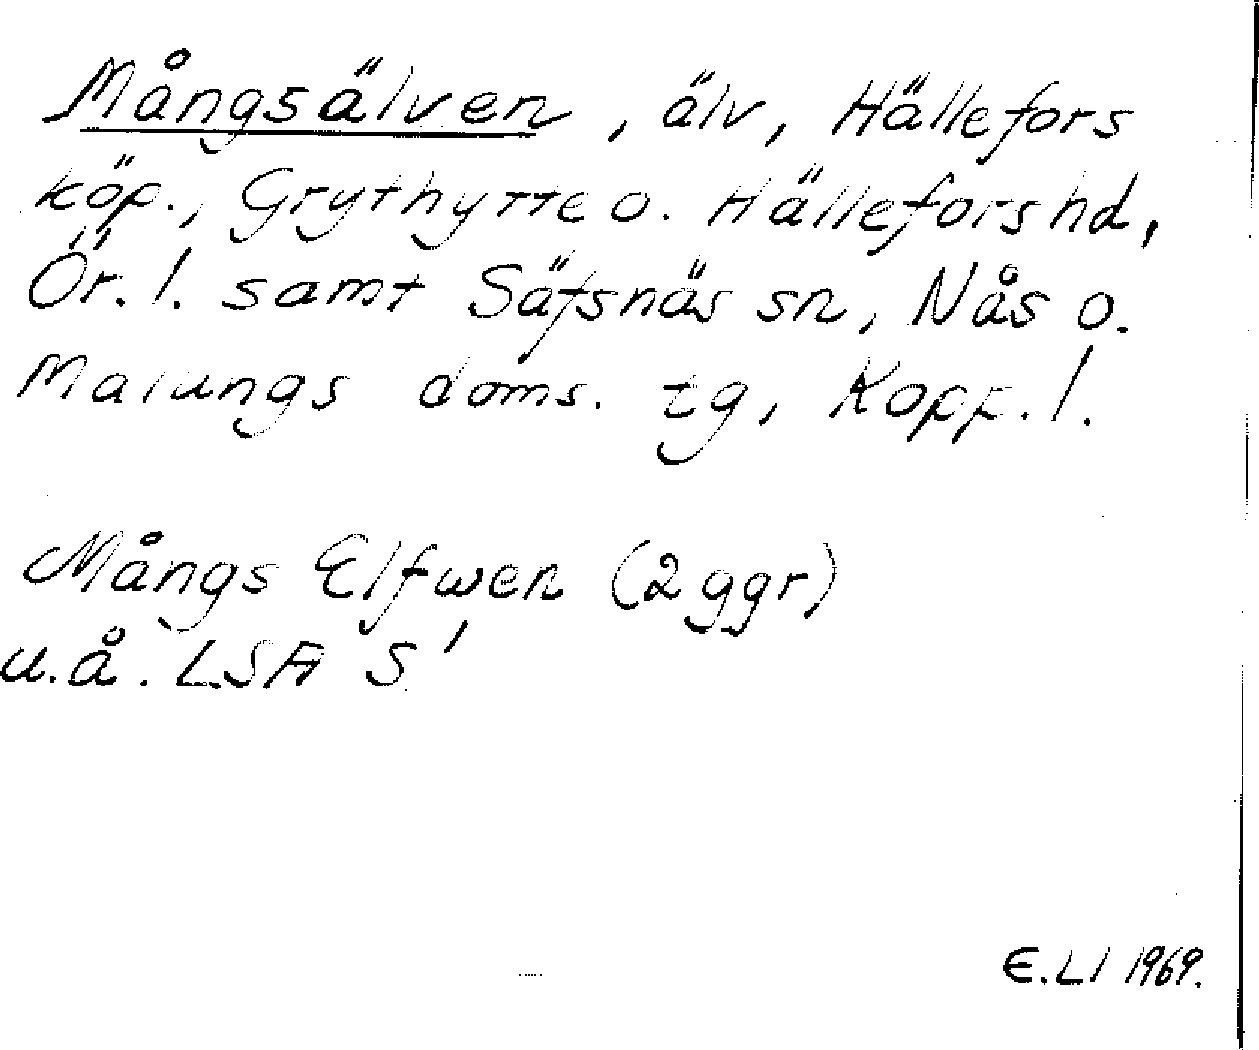 Mångsälven, älv, Hällefors
köp., Grythytte o. Hällefors hd,
Ör. l. samt Säfsnäs sn, Nås o.
Malungs doms. tg, Kopp. l.
Mångs Elfwen (2 ggr)
u.å. LSA S'
E.Ll 1969.